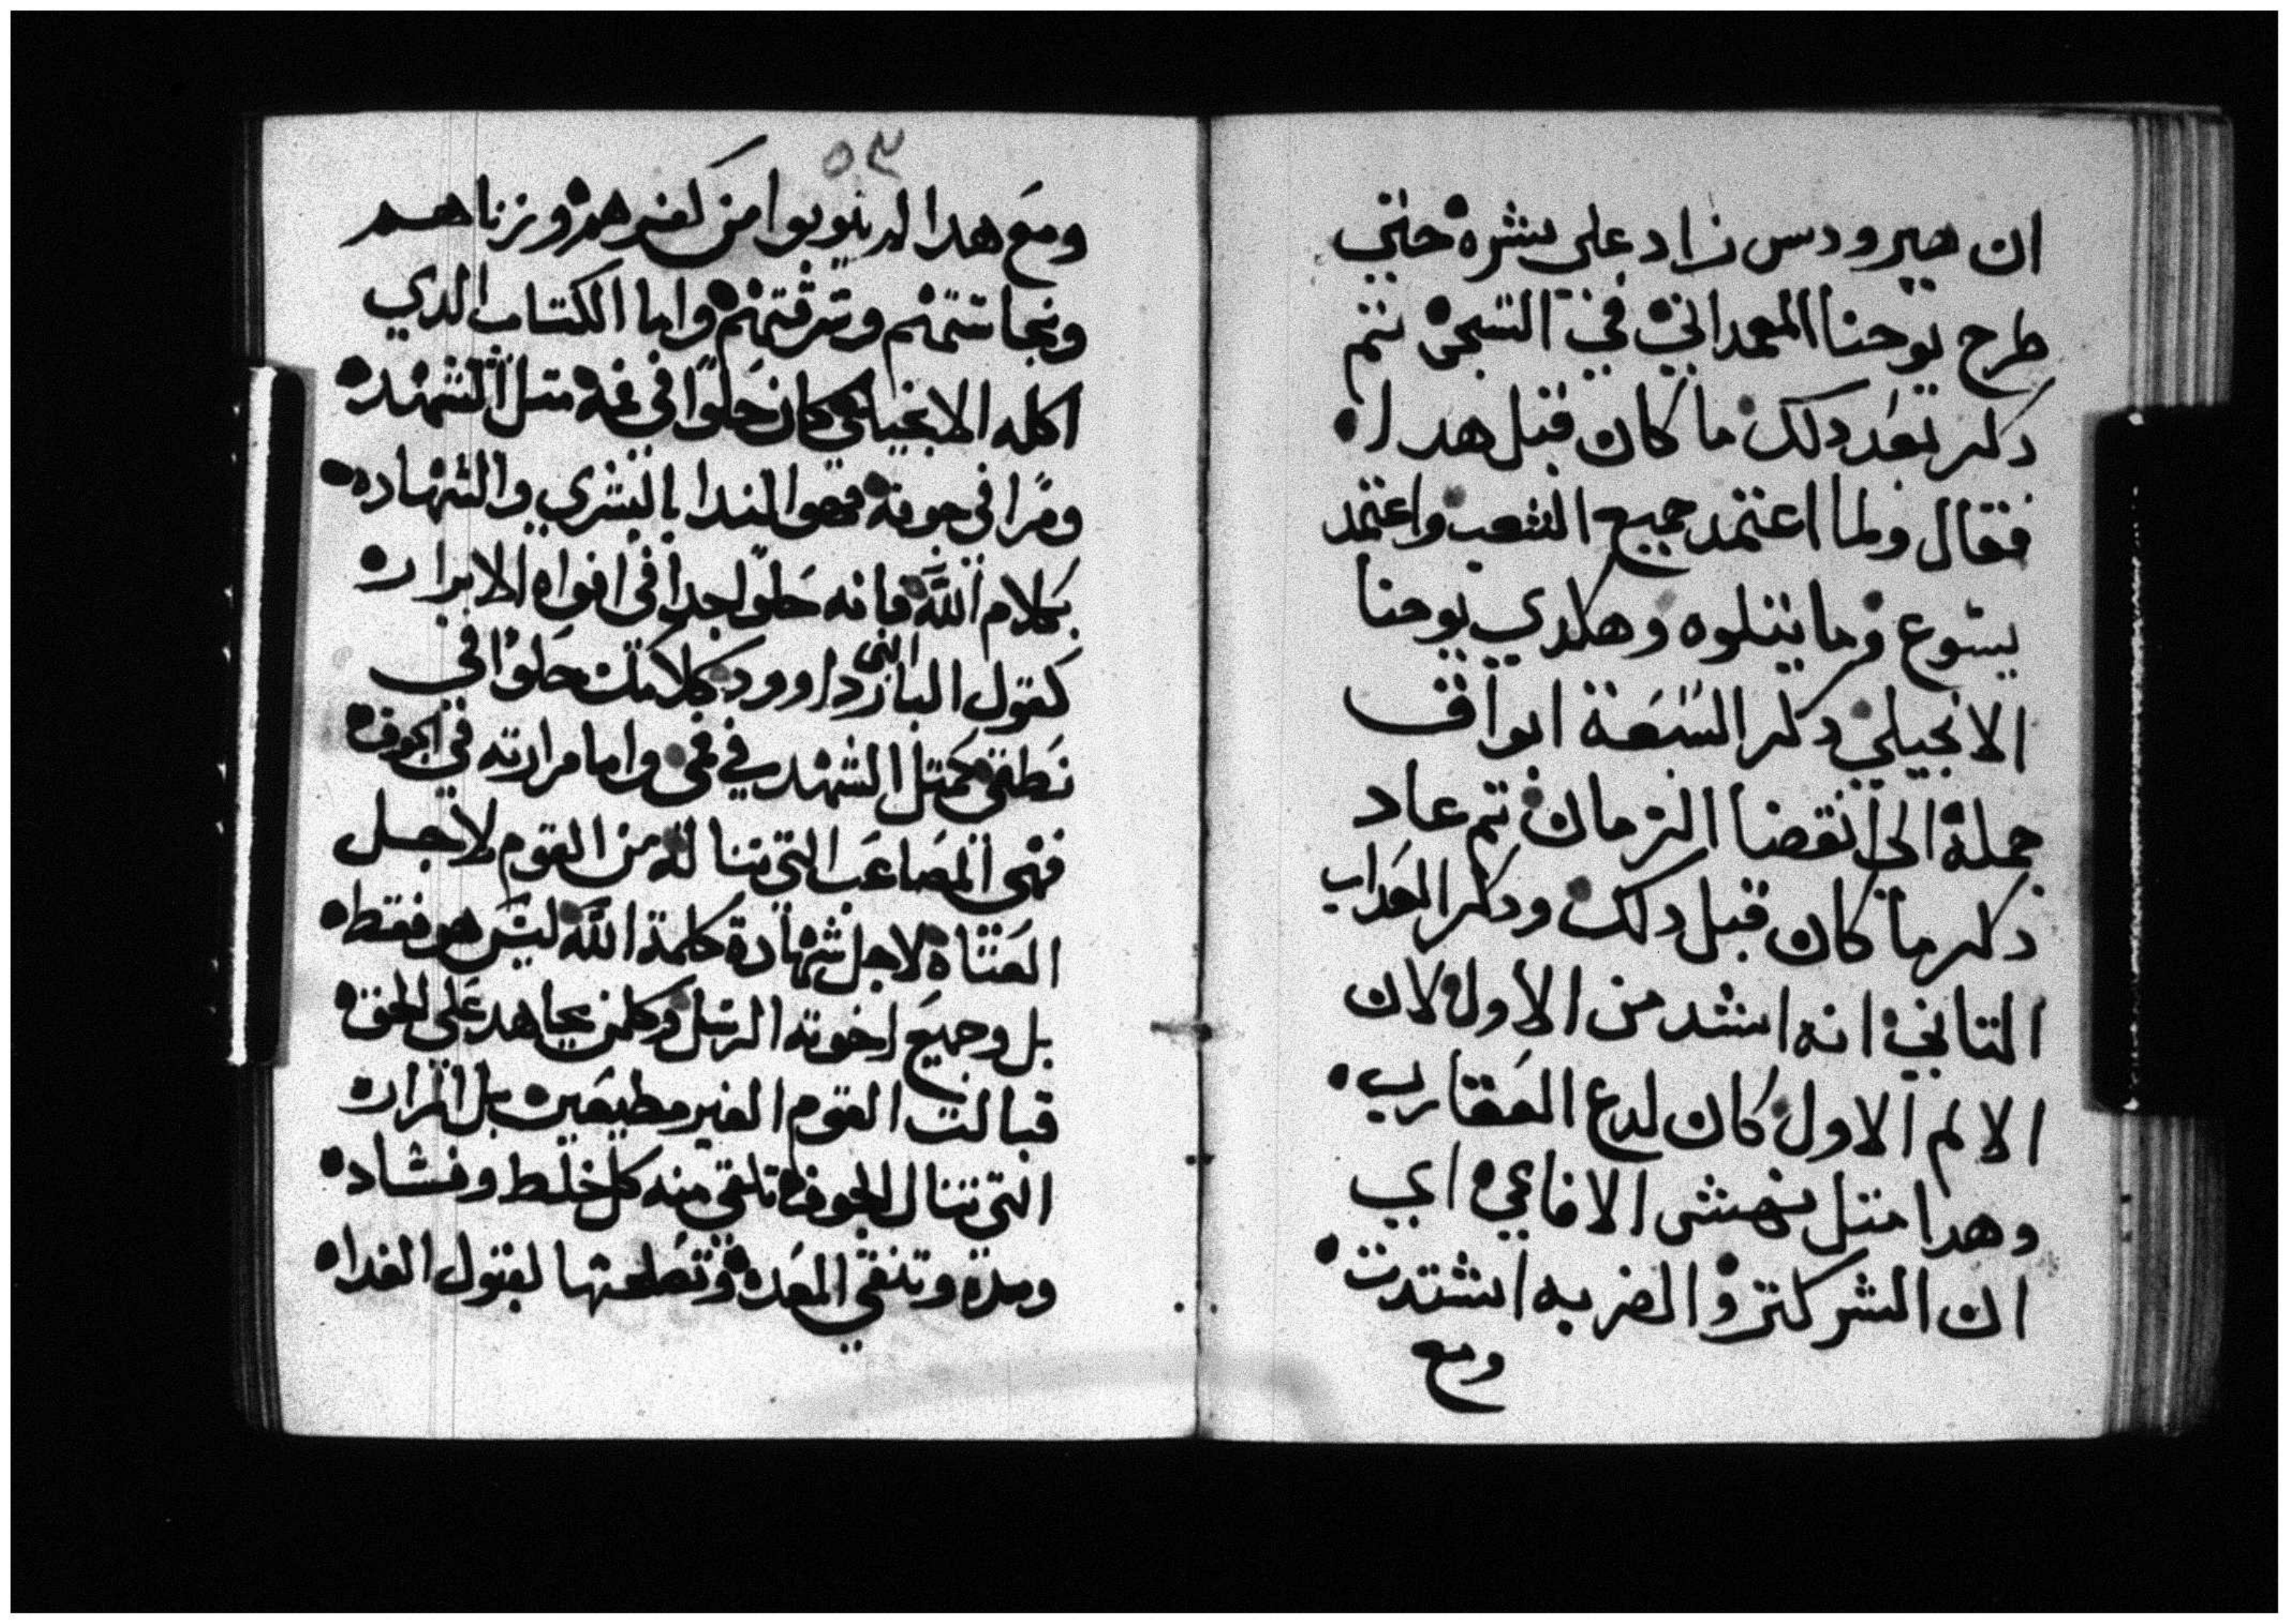 ان هيرودس زاد على بشره حتي
طرح يوحنا المعمداني في السجن تم
دكر بعد دلك ما كان قبل هدا
فقال ولما اعتمد جميع الشعب واعتمد
يسوع وما يتلوه وهكدي يوحنا
الانجيلي دكر السبعة ابواق
جملة الى انقضا الزمان تم عاد
دكر ما كان قبل دلك ودكر العداب
التاني انه اشد من الاول لان
الالم الاول كان لدع العقارب
وهدا متل نهش الافاعي اي
ان الشر كتر والضربه اشتدت
ومع
٥٣
ومع هدا لم يتوبوا من كفرهم وزناهم
ونجاستهم وسرقتهم واما الكتاب الدي
اكله الانجيلي كان حلوا في فمه متل الشهد
ومرا في جوفه فهو الندا بالبشري والشهاده
بكلام الله فانه حلو جدا في افواه الابرار
كقول البار النبى داوود كلامك حلوا في
نطقي كمتل الشهد في فمي واما مرارته في الجوف
فهى المصاعب التي تناله من القوم لاجل
العتاه لاجل شهادة كلمة الله ليس هو فقط
بل وجميع اخوته الرسل وكلمن يجاهد على الحق
قبالت القوم الغير مطيعين بل المرار
التي تنال الجوف تلقي منه كل خلط وفساد
ومدة وتنقي المعده وتصلحها لقبول الغدا